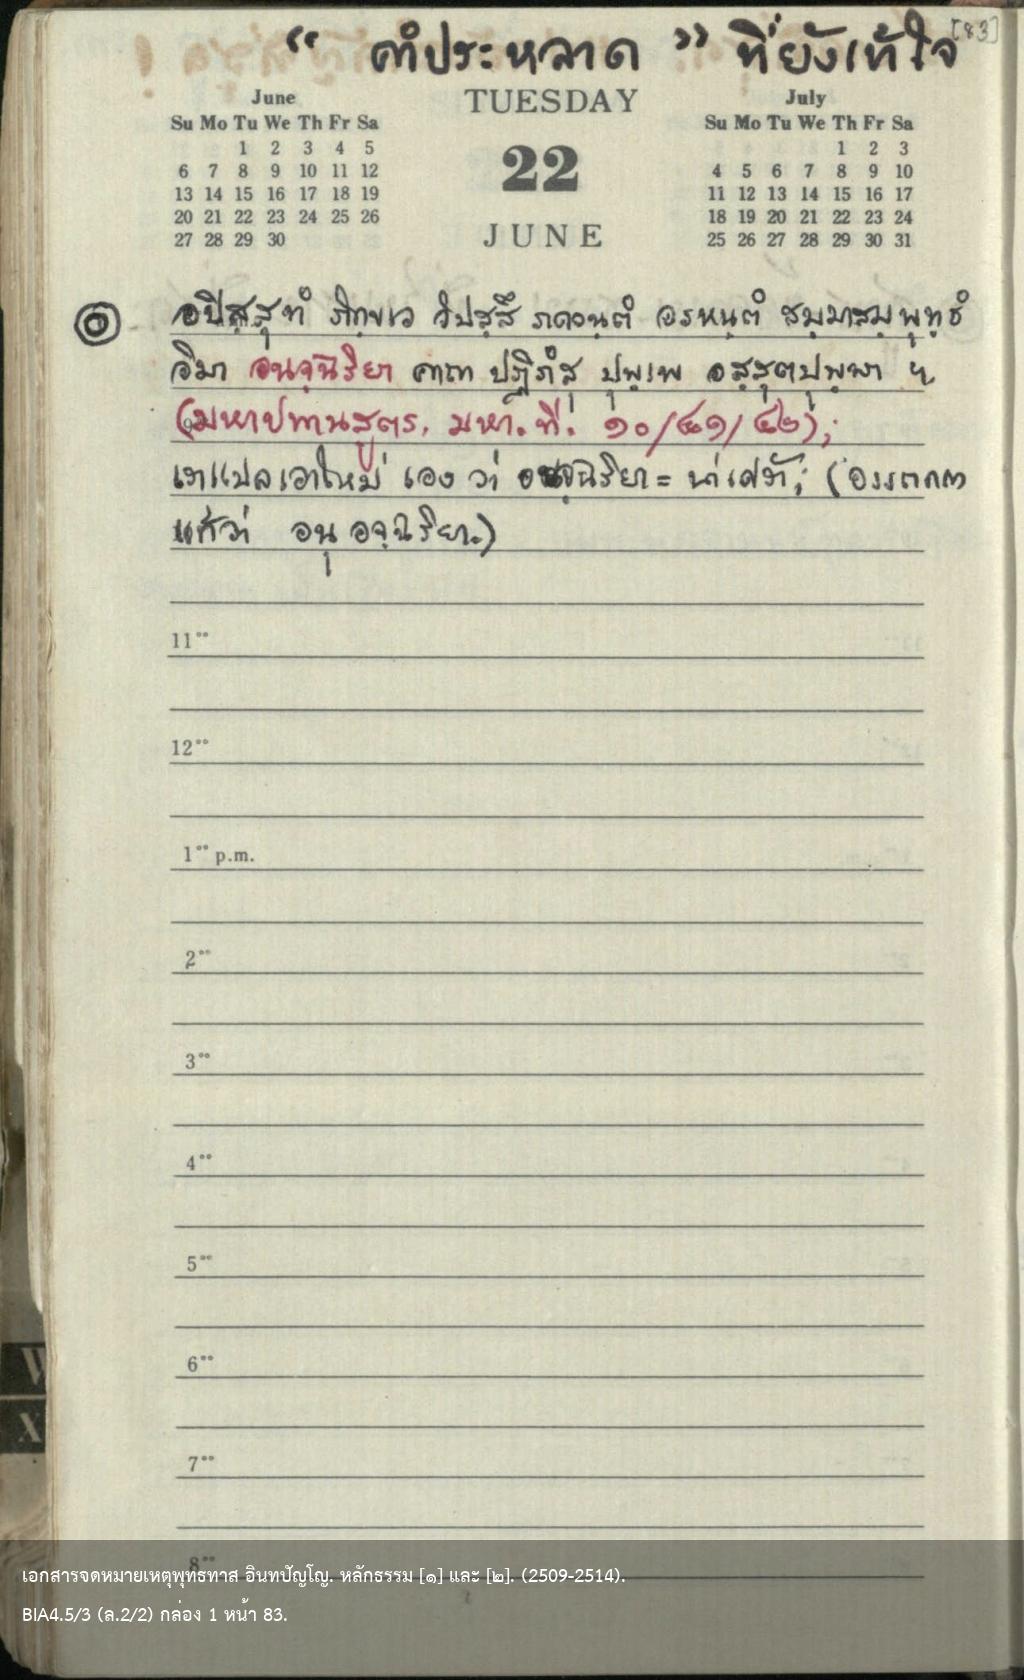 [83]
“ คำประหลาด ” ที่ยังเข้าใจ
June
TUESDAY
July
Su Mo Tu We Th Fr Sa
Su Mo Tu We Th Fr Sa
1 2 3 4 5
22
1 2 3
6 7 8 9 10 11 12
4 5 6 7 8 9 10
13 14 15 16 17 18 19
11 12 13 14 15 16 17
20 21 22 23 24 25 26
18 19 20 21 22 23 24
27 28 29 30
JUNE
25 26 27 28 29 30 31
อปิสฺสุทํ ภิกฺขเว วิปสฺสึ ภควนฺตํ อรหนฺตํ สมฺมาสมฺพุทฺธํ
อิมา อนจฺฉิริยา คาถา ปฏิภํสุ ปุพฺเพ อสฺสุตปุพฺพา ฯ
(มหาปทานสูตร. มหา. ที. ๑๐/๔๑/๔๒);
เราแปลเอาใหม่ เอง ว่า อนจฺฉิริยา = น่าเศร้า; (อรรถกถา
แก้ว่า อนุ อจฺฉิริยา.)
11°°
12°°
1°° p.m.
2°°
3°°
4°°
5°°
6°°
7°°
8°°
เอกสารจดหมายเหตุพุทธทาส อินทปัญโญ. หลักธรรม [๑] และ [๒]. (2509-2514).
BIA4.5/3 (ล.2/2) กล่อง 1 หน้า 83.